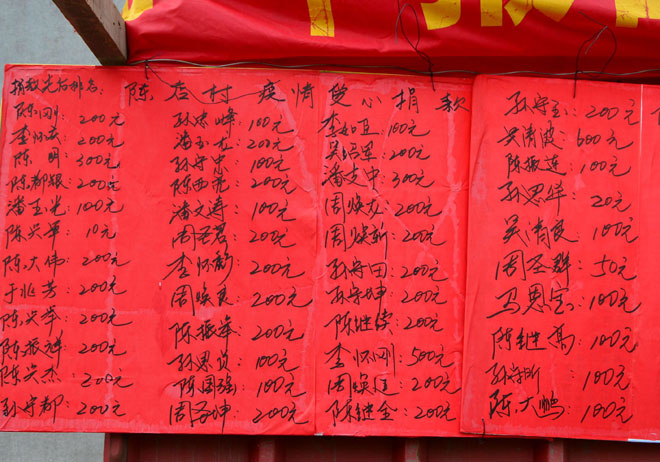 陈店村疫情爱心捐款
捐款先后排名:
陈刚: 200元
李怀英: 200元
陈明: 300元
陈都银: 200元
潘玉光: 100元
陈兴军: 10元
陈大伟: 200元
于兆芳: 200元
陈兴华: 200元
陈振祥: 200元
陈兴杰: 200元
孙守都: 200元
孙忠峰: 100元
潘玉龙: 200元
孙守忠: 100元
陈西亮: 200元
潘文涛: 100元
周圣君: 200元
李怀龄: 200元
周焕良: 200元
陈振举: 200元
孙思贞: 100元
陈国强: 100元
周圣坤: 200元
李如宣: 100元
吴绍军: 200元
潘支中: 300元
周焕友: 200元
周焕新: 200元
孙守田: 200元
孙守坤: 200元
陈继续: 200元
李怀刚: 500元
周焕廷: 200元
陈继全: 200元
孙守玉: 200元
吴清波: 600元
陈振连: 100元
孙思华: 20元
吴清良: 100元
周圣群: 50元
马恩宝: 100元
陈继高: 100元
孙守昕: 100元
陈大鹏: 100元